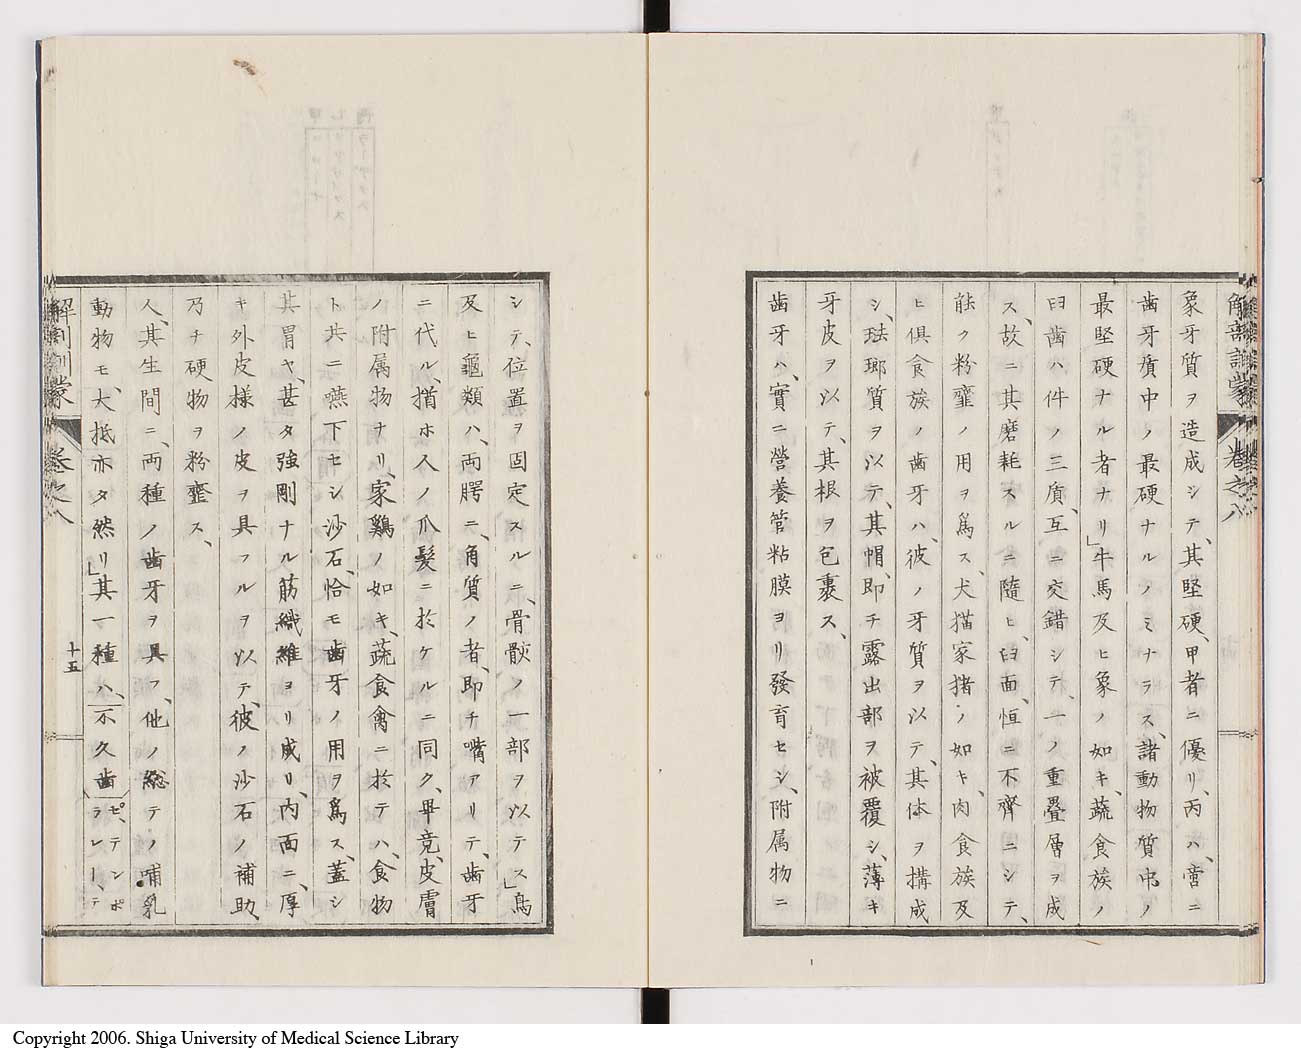 解剖訓蒙 卷之八
象牙質ヲ造成シテ、其堅硬、甲者ニ優リ、丙ハ、啻ニ
齒牙質中ノ最硬ナルノミナラス、諸動物質中ノ
最堅硬ナル者ナリ」牛馬及ヒ象ノ如キ、蔬食族ノ
臼齒ハ件ノ三質、互ニ交錯シテ、一ノ重疊層ヲ成
ス、故ニ其磨耗スルニ隨ヒ、臼面、恒ニ不齊ニシテ、
能ク粉韲ノ用ヲ爲ス、犬猫家猪ノ如キ、肉食族及
ヒ倶食族ノ齒牙ハ、彼ノ牙質ヲ以テ、其体ヲ搆成
シ、琺瑯質ヲ以テ、其帽、即チ露出部ヲ被覆シ、薄キ
牙皮ヲ以テ、其根ヲ包裹ス、
齒牙ハ、實ニ營養管粘膜ヨリ發育セシ、附属物ニ
シテ、位置ヲ固定スルニ、骨骸ノ一部ヲ以テス」鳥
及ヒ龜類ハ、両腭ニ、角質ノ者、即チ嘴アリテ、齒牙
ニ代ル、猶ホ人ノ爪髮ニ於ケルニ同ク、畢竟、皮膚
ノ附属物ナリ、家鷄ノ如キ、蔬食禽ニ於テハ、食物
ト共ニ嚥下セシ沙石、恰モ齒牙ノ用ヲ爲ス、蓋シ
其胃ヤ、甚タ強剛ナル筋織維ヨリ成リ、内面ニ、厚
キ外皮様ノ皮ヲ具フルヲ以テ、彼ノ沙石ノ補助、
乃チ硬物ヲ粉韲ス、
人、其生間ニ、両種ノ齒牙ヲ具フ、他ノ総テノ哺乳
動物モ、大抵亦タ然リ」其一種ハ、不久齒 ピ、テンポ
ラレー、テ
解剖訓蒙 卷之八 十五
Copyright 2006. Shiga University of Medical Science Library